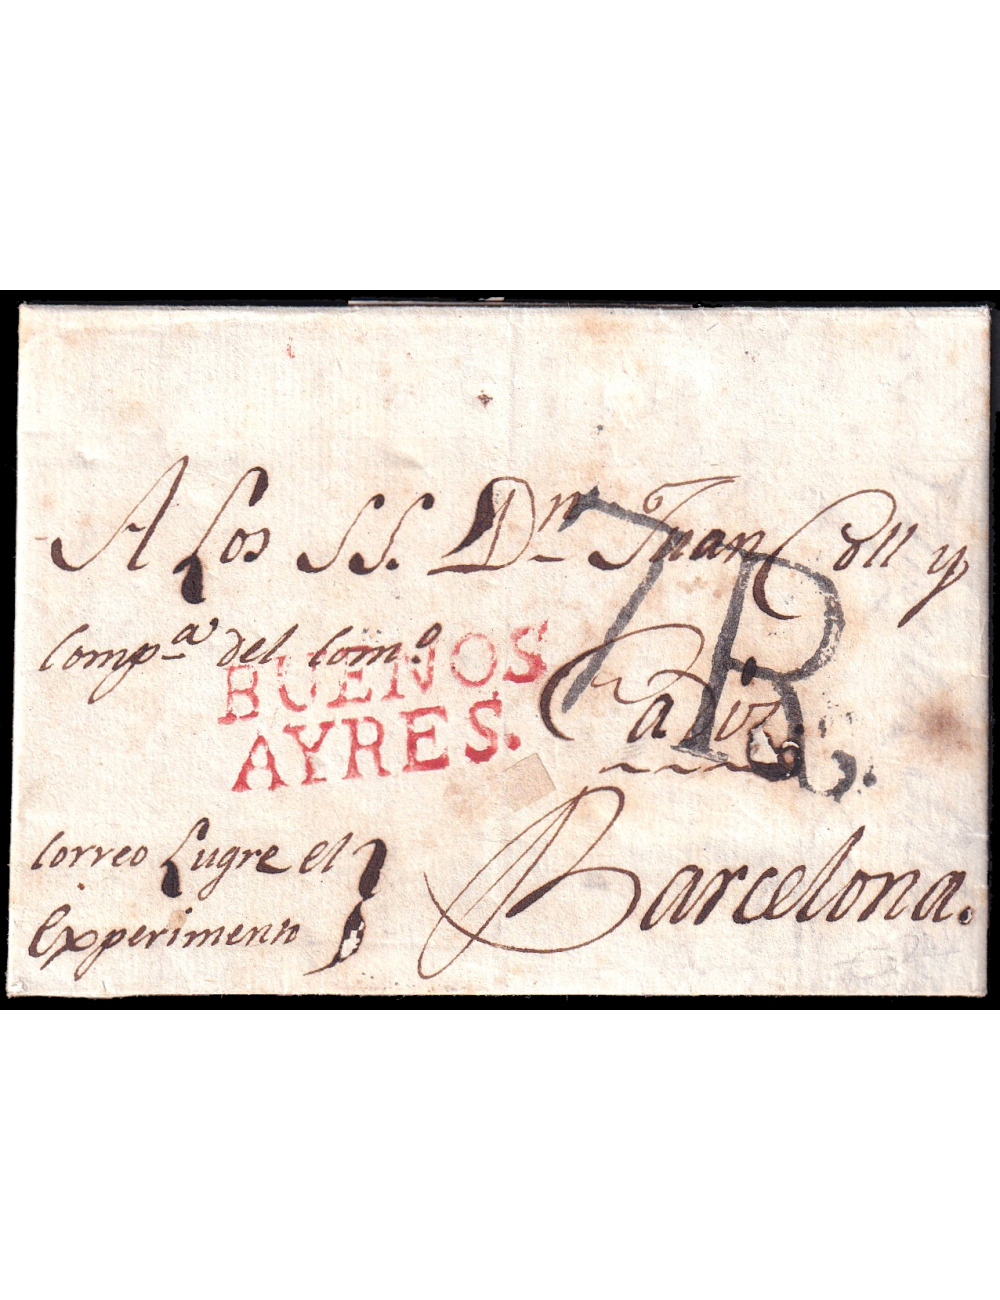 A Los SS. Dn Juan Coll y
Compª del Comº
BUENOS
AYRES.
Cadiz
7R
Correo Lugre el
Experimento
Barcelona.